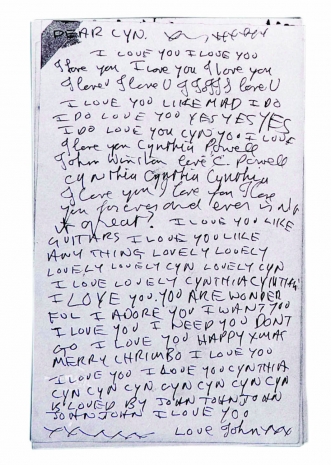 DEAR CYN.
I LOVE YOU I LOVE YOU
I love you I love you I love you
I love U I love U I love U
I LOVE YOU LIKE MAD I DO
I DO LOVE YOU YES YES YES
I DO LOVE YOU CYN YOU I LOVE
I love you Cynthia Powell
John Winston love C. Powell
Cynthia Cynthia Cynthia
I love you I love you I love
you forever and ever isn't
it great? I LOVE YOU LIKE
GUITARS I LOVE YOU LIKE
ANY THING LOVELY LOVELY
LOVELY LOVELY CYN LOVELY CYN
I LOVE LOVELY CYNTHIA CYNTHIA
I LOVE YOU. YOU ARE WONDER
FUL I ADORE YOU I WANT YOU
I LOVE YOU I NEED YOU DONT
GO I LOVE YOU HAPPY XMAS
MERRY CHRIMBO I LOVE YOU
I LOVE YOU I LOVE YOU CYNTHIA
CYN CYN CYN CYN CYN CYN CYN
IS LOVED BY JOHN JOHN JOHN
JOHN JOHN I LOVE YOU
LOVE John xxx